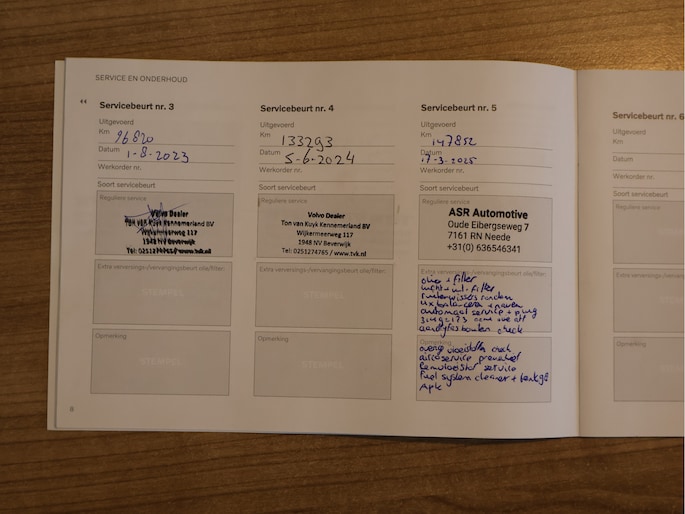 SERVICE EN ONDERHOUD
“
Servicebeurt nr. 3
Uitgevoerd
Km 96820
Datum 1-8-2023
Werkorder nr.
Soort servicebeurt
Reguliere service
Volvo Dealer
Ton van Kuyk Kennemerland BV
Wijkermeerweg 117
1948 NV Beverwijk
Tel: 0251274765 / www.tvk.nl
Extra verversings-/vervangingsbeurt olie/filter:
STEMPEL
Opmerking
STEMPEL
8
Servicebeurt nr. 4
Uitgevoerd
Km 133293
Datum 5-6-2024
Werkorder nr.
Soort servicebeurt
Reguliere service
Volvo Dealer
Ton van Kuyk Kennemerland BV
Wijkermeerweg 117
1948 NV Beverwijk
Tel: 0251274765 / www.tvk.nl
Extra verversings-/vervangingsbeurt olie/filter:
STEMPEL
Opmerking
STEMPEL
Servicebeurt nr. 5
Uitgevoerd
Km 147852
Datum 17-3-2025
Werkorder nr.
Soort servicebeurt
Reguliere service
ASR Automotive
Oude Eibergseweg 7
7161 RN Neede
+31(0) 636546341
Extra verversings-/vervangingsbeurt olie/filter:
olie + filter
filter
ruitenwissers
automaat service +
check
Opmerking
overige vloeistoffen check
aircoservice preventief
Remvloeistof service
Fuel system cleaner +
Apk
Servicebeurt nr. 6
Uitgevoerd
Km
Datum
Werkorder nr.
Soort servicebeurt
Reguliere service
Opmerking